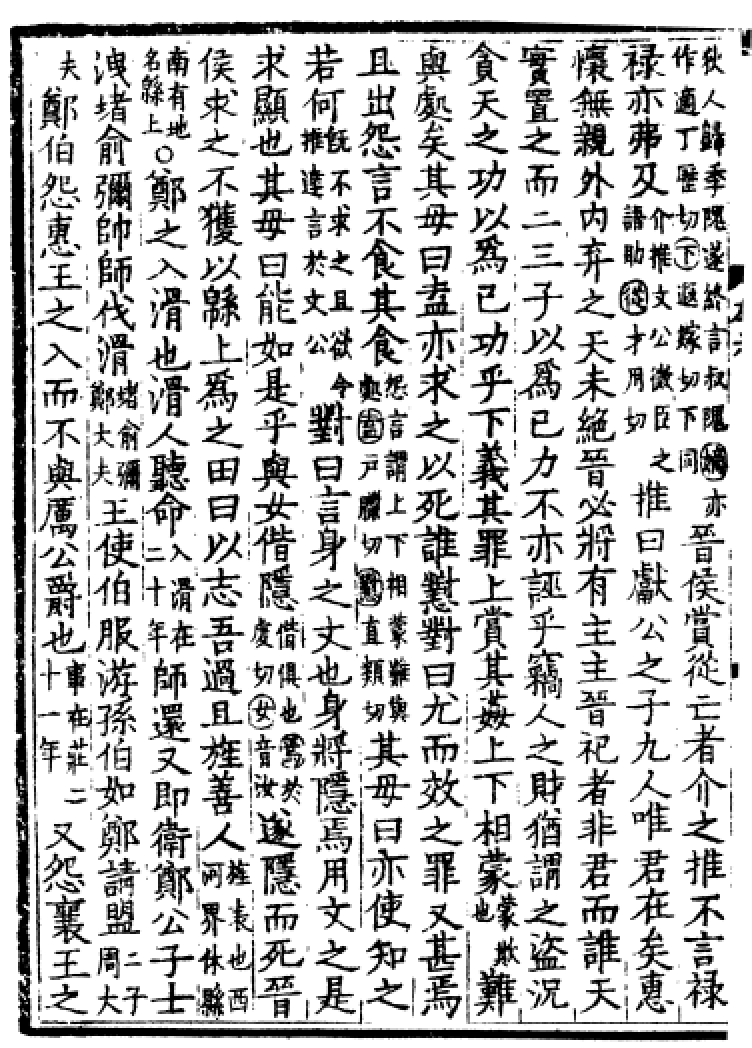 狄人歸季隗遂終言叔隗嫡亦作適丁歷切下遐嫁切下同晉侯賞從亡者介之推不言祿
祿亦弗及介推文公微臣之語助從才用切推曰獻公之子九人唯君在矣惠
懷無親外內弃之天未絕晉必將有主主晉祀者非君而誰天
實置之而二三子以爲己力不亦誣乎竊人之財猶謂之盜況
貪天之功以爲己功乎下義其罪上賞其姦上下相蒙蒙欺也難
與處矣其母曰盍亦求之以死誰懟對曰尤而效之罪又甚焉
且出怨言不食其食怨言謂上下相蒙難與處盍戶臘切懟直類切其母曰亦使知之
若何既不求之且欲令推達言於文公對曰言身之文也身將隱焉用文之是
求顯也其母曰能如是乎與女偕隱偕俱也焉於虔切女音汝遂隱而死晉
侯求之不獲以緜上爲之田曰以志吾過且旌善人旌表也西河界休縣
南有地名緜上○鄭之入滑也滑人聽命入滑在二十年師還又即衛鄭公子士
洩堵俞彌帥師伐滑堵俞彌鄭大夫王使伯服游孫伯如鄭請盟二子周大
夫鄭伯怨惠王之入而不與厲公爵也事在莊二十一年又怨襄王之